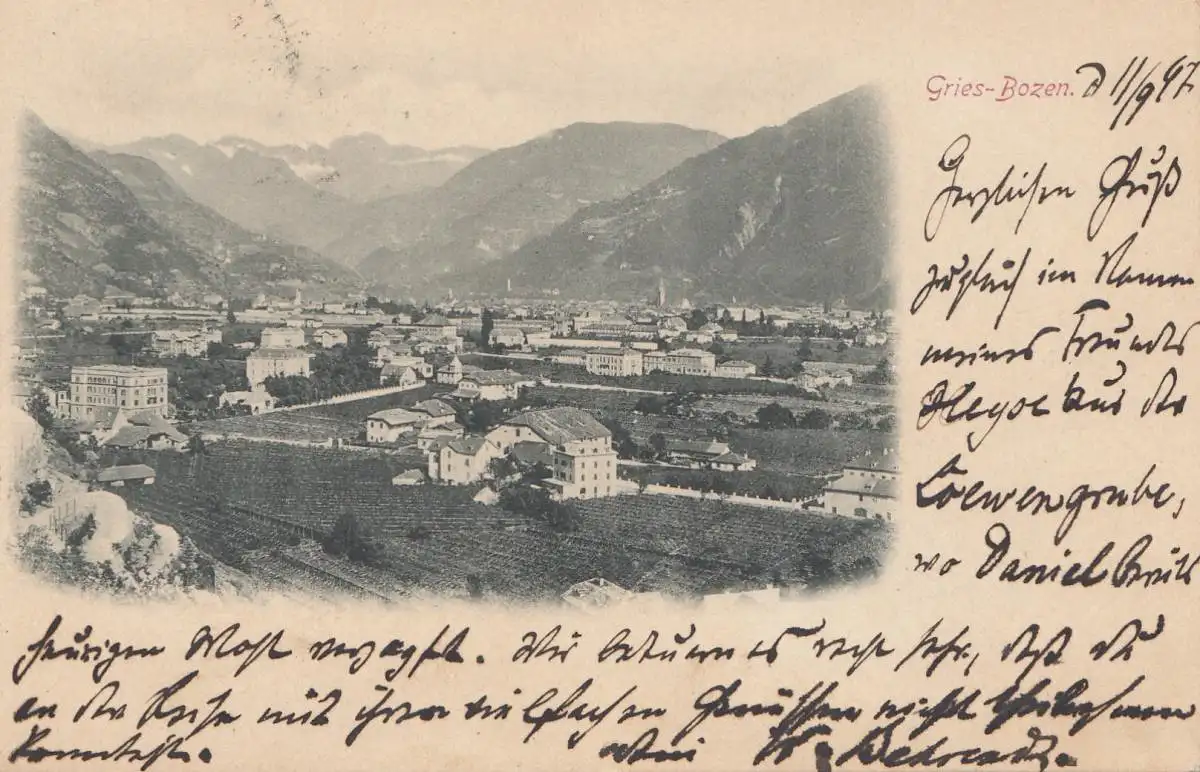 Gries-Bozen. d 11/9 97.
Herzlichen Gruß
zugleich im Namen
meines Freundes
Meyer aus der
Loewengrube,
wo Daniel bereits
heurigen Most verzapft. Wir bedauern es recht sehr, daß du
an der Reise mit ihren vielfachen Genüssen nicht theilnehmen
konntest. Dein